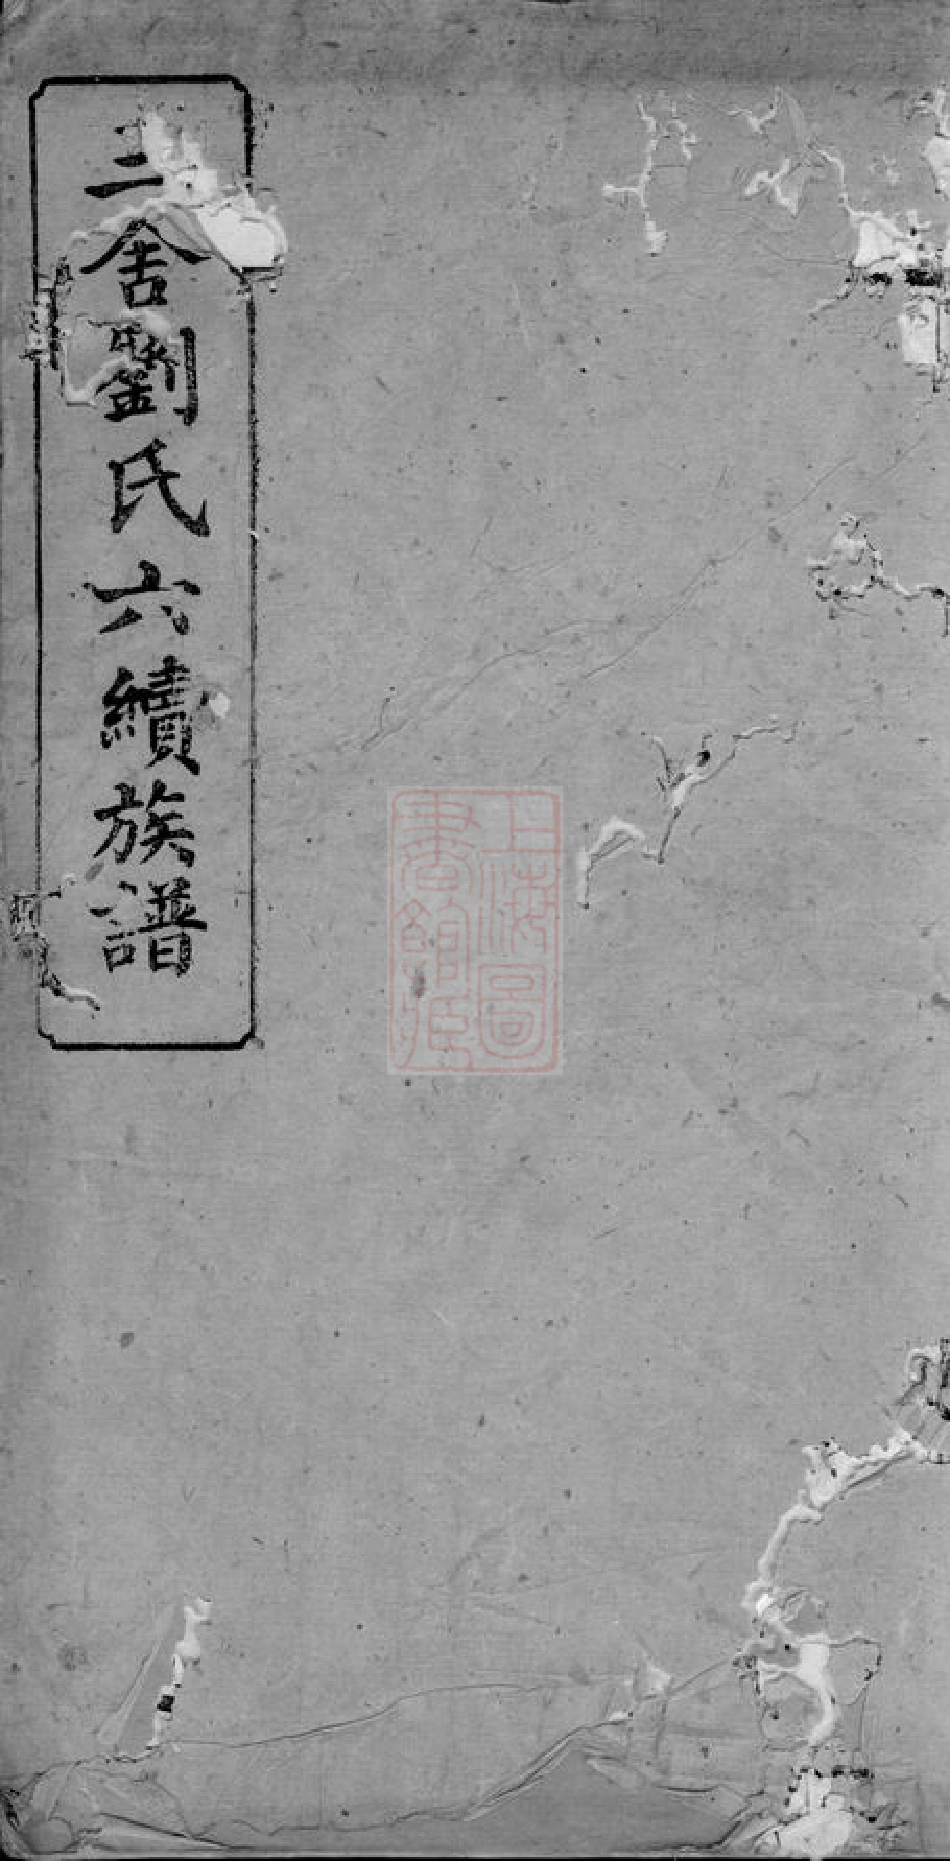 三舍劉氏六續族譜
上海圖
書館藏